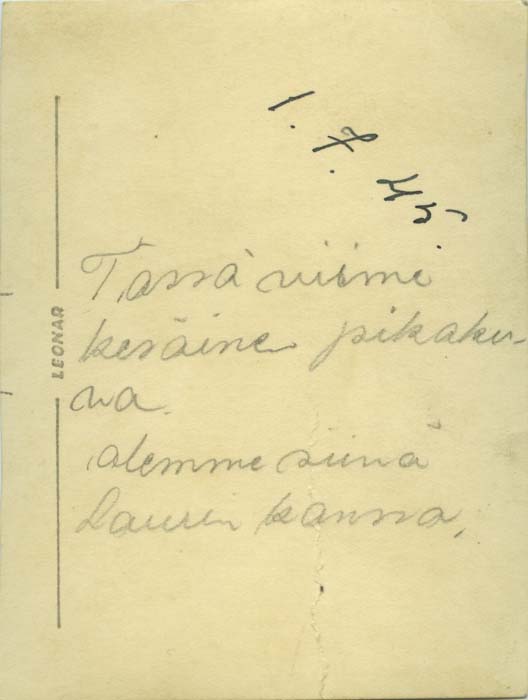 1.7.45.
Tässä viime
keräine pikaku-
va.
olemme siinä
Laurin kanssa.
LEONAR